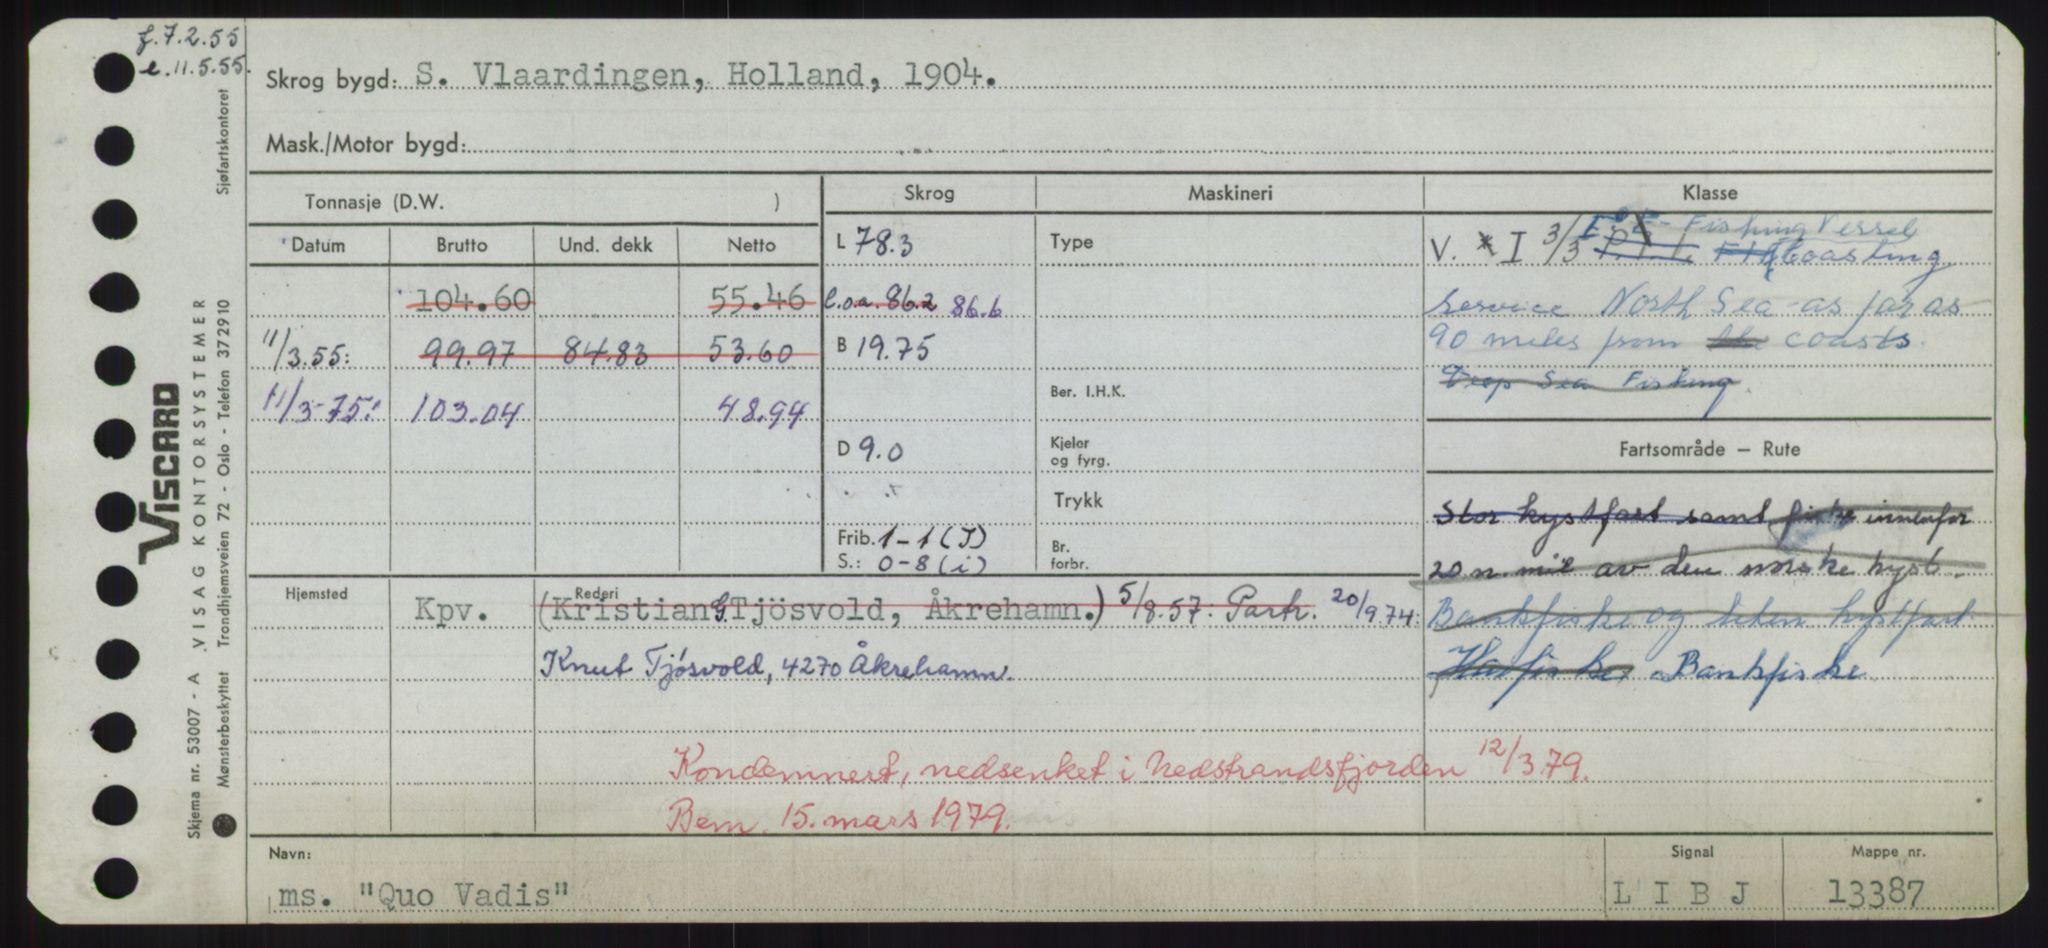 f. 7.2.55
e. 11.5.55.
Skrog bygd: S. Vlaardingen, Holland, 1904.
Mask./Motor bygd:
Tonnasje (D.W. )
Skrog
Maskineri
Klasse
Datum Brutto Und. dekk Netto
104.60 55.46
11/3.55: 99.97 84.83 53.60
11/3-75: 103.04 48.94
L 78.3
l.o.a. 86.2 86.6
B 19.75
D 9.0
Frib. 1-1 (J)
S.: 0-8 (i)
Type
Ber. I.H.K.
Kjeler
og fyrg.
Trykk
Br.
forbr.
Fishing Vessel
V. * I 3/3 Coasting
service North Sea as far as
90 miles from the coasts.
Deep Sea Fishing.
Fartsområde – Rute
Stor kystfart samt fiske innenfor
20 n. mil av den norske kyst.
Bankfiske og liten kystfart
Havfiske Bankfiske
Hjemsted
Rederi
Kpv. (Kristian G. Tjösvold, Åkrehamn.) 5/8.57: Partr. 20/9.74:
Knut Tjösvold, 4270 Åkrehamn.
Kondemnert, nedsenket i Nedstrandsfjorden 12/3.79.
Bem. 15. mars 1979.
Navn:
ms. "Quo Vadis"
Signal
L I B J
Mappe nr.
13387
VISCARD
VISAG KONTORSYSTEMER
Skjema nr. 53007 - A
Mønsterbeskyttet Trondhjemsveien 72 - Oslo - Telefon 372910 Sjøfartskontoret